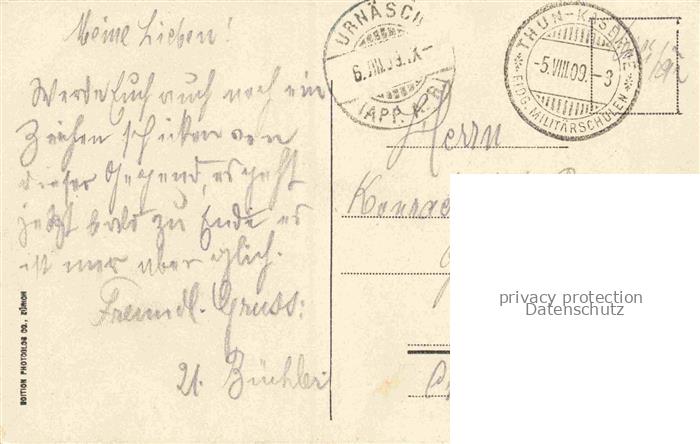 Meine Lieben!
Werde Euch auch noch ein
Zeichen schicken von
dieser Gegend, es geht
jetzt bald zu Ende es
ist mer aber glich.
Freundl. Gruss:
Büchler
EDITION PHOTOGLOB CO., ZÜRICH
URNÄSCH
(APP. A.R.)
THUN-KASERNE
-5.VIII.09.-3
EIDG. MILITÄRSCHULEN
Herrn
privacy protection
Datenschutz